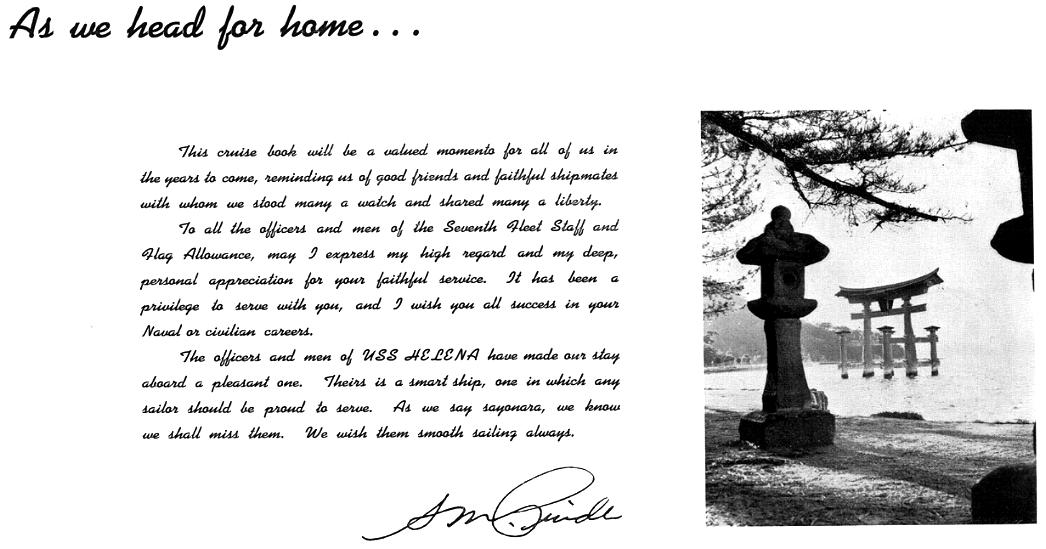 As we head for home...
This cruise book will be a valued momento for all of us in
the years to come, reminding us of good friends and faithful shipmates
with whom we stood many a watch and shared many a liberty.
To all the officers and men of the Seventh Fleet Staff and
Flag Allowance, may I express my high regard and my deep,
personal appreciation for your faithful service. It has been a
privilege to serve with you, and I wish you all success in your
Naval or civilian careers.
The officers and men of USS HELENA have made our stay
aboard a pleasant one. Theirs is a smart ship, one in which any
sailor should be proud to serve. As we say sayonara, we know
we shall miss them. We wish them smooth sailing always.